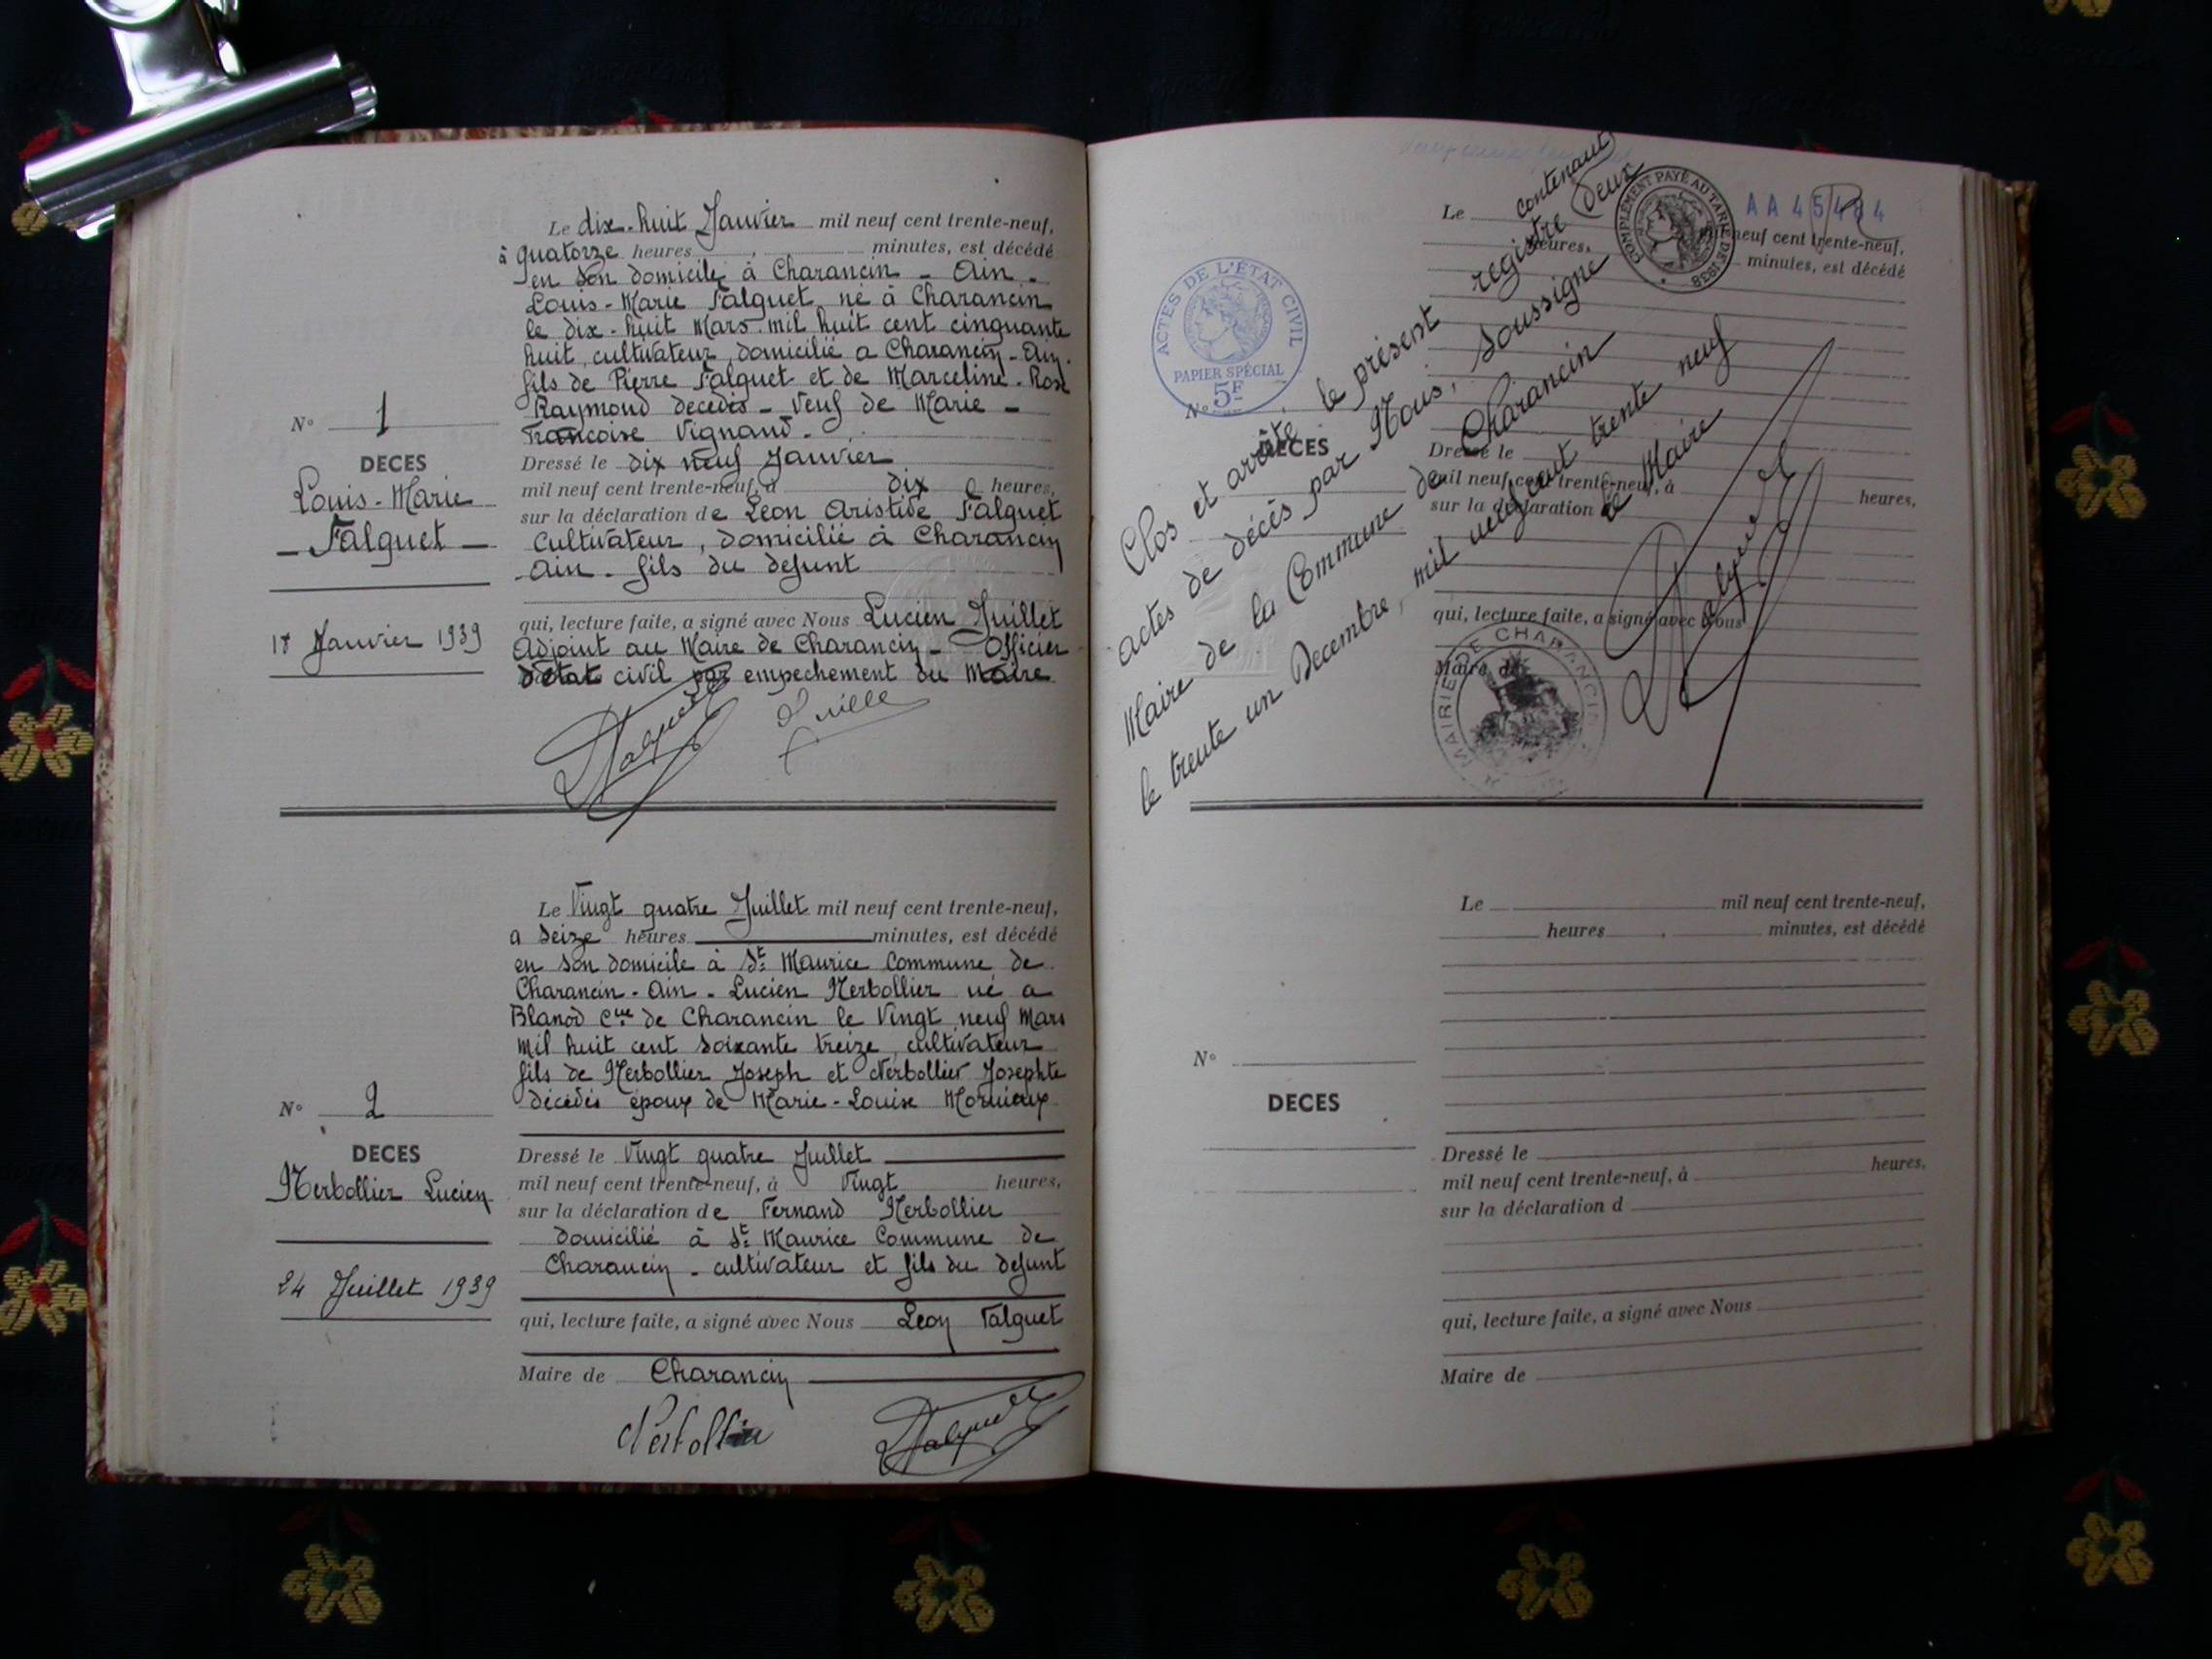 Le dix-huit Janvier mil neuf cent trente-neuf,
à quatorze heures minutes, est décédé
en son domicile à Charancin - Ain -
Louis-Marie Falguet, né à Charancin
le dix-huit Mars mil huit cent cinquante
huit, cultivateur, domicilié a Charancin - Ain.
fils de Pierre Falguet et de Marceline-Rose
Raymond decedés - Veuf de Marie -
Francoise Vignand.
N° 1
DECES
Louis-Marie
- Falguet -
18 Janvier 1939
Dressé le dix neuf Janvier
mil neuf cent trente-neuf, à dix heures,
sur la déclaration de Leon Aristide Falguet
Cultivateur, domicilié à Charancin
- Ain - fils du defunt
qui, lecture faite, a signé avec Nous Lucien Juillet
Adjoint au Maire de Charancin - Officier
d'état civil par empechement du Maire
Falguet Juillet
Le Vingt quatre Juillet mil neuf cent trente-neuf,
a Seize heures minutes, est décédé
en son domicile à St Maurice Commune de
Charancin - Ain - Lucien Nerbollier né a
Blanod Cne de Charancin le Vingt neuf Mars
mil huit cent soixante treize, cultivateur
fils de Nerbollier Joseph et Nerbollier Josephte
décédés époux de Marie-Louise Mornieux
N° 2
DECES
Nerbollier Lucien
24 Juillet 1939
Dressé le Vingt quatre Juillet
mil neuf cent trente-neuf, à Vingt heures,
sur la déclaration de Fernand Nerbollier
domicilié à St Maurice Commune de
Charancin - cultivateur et fils du defunt
qui, lecture faite, a signé avec Nous Leon Falguet
Maire de Charancin
Nerbollier Falguet
AA 45484
COMPLÉMENT PAYÉ AU TARIF DE 1938
ACTES DE L'ÉTAT CIVIL
PAPIER SPÉCIAL
5F
Le
mil neuf cent trente-neuf,
heures, minutes, est décédé
N°
DECES
Clos et arrêté, le présent registre contenant deux
actes de décès par Nous, soussigné
Maire de la Commune de Charancin
le trente un Decembre, mil neuf cent trente neuf
le Maire
Falguet
Dressé le
mil neuf cent trente-neuf, à heures,
sur la déclaration d
qui, lecture faite, a signé avec Nous
Maire de
MAIRIE DE CHARANCIN
Le mil neuf cent trente-neuf,
heures, minutes, est décédé
N°
DECES
Dressé le
mil neuf cent trente-neuf, à heures,
sur la déclaration d
qui, lecture faite, a signé avec Nous
Maire de